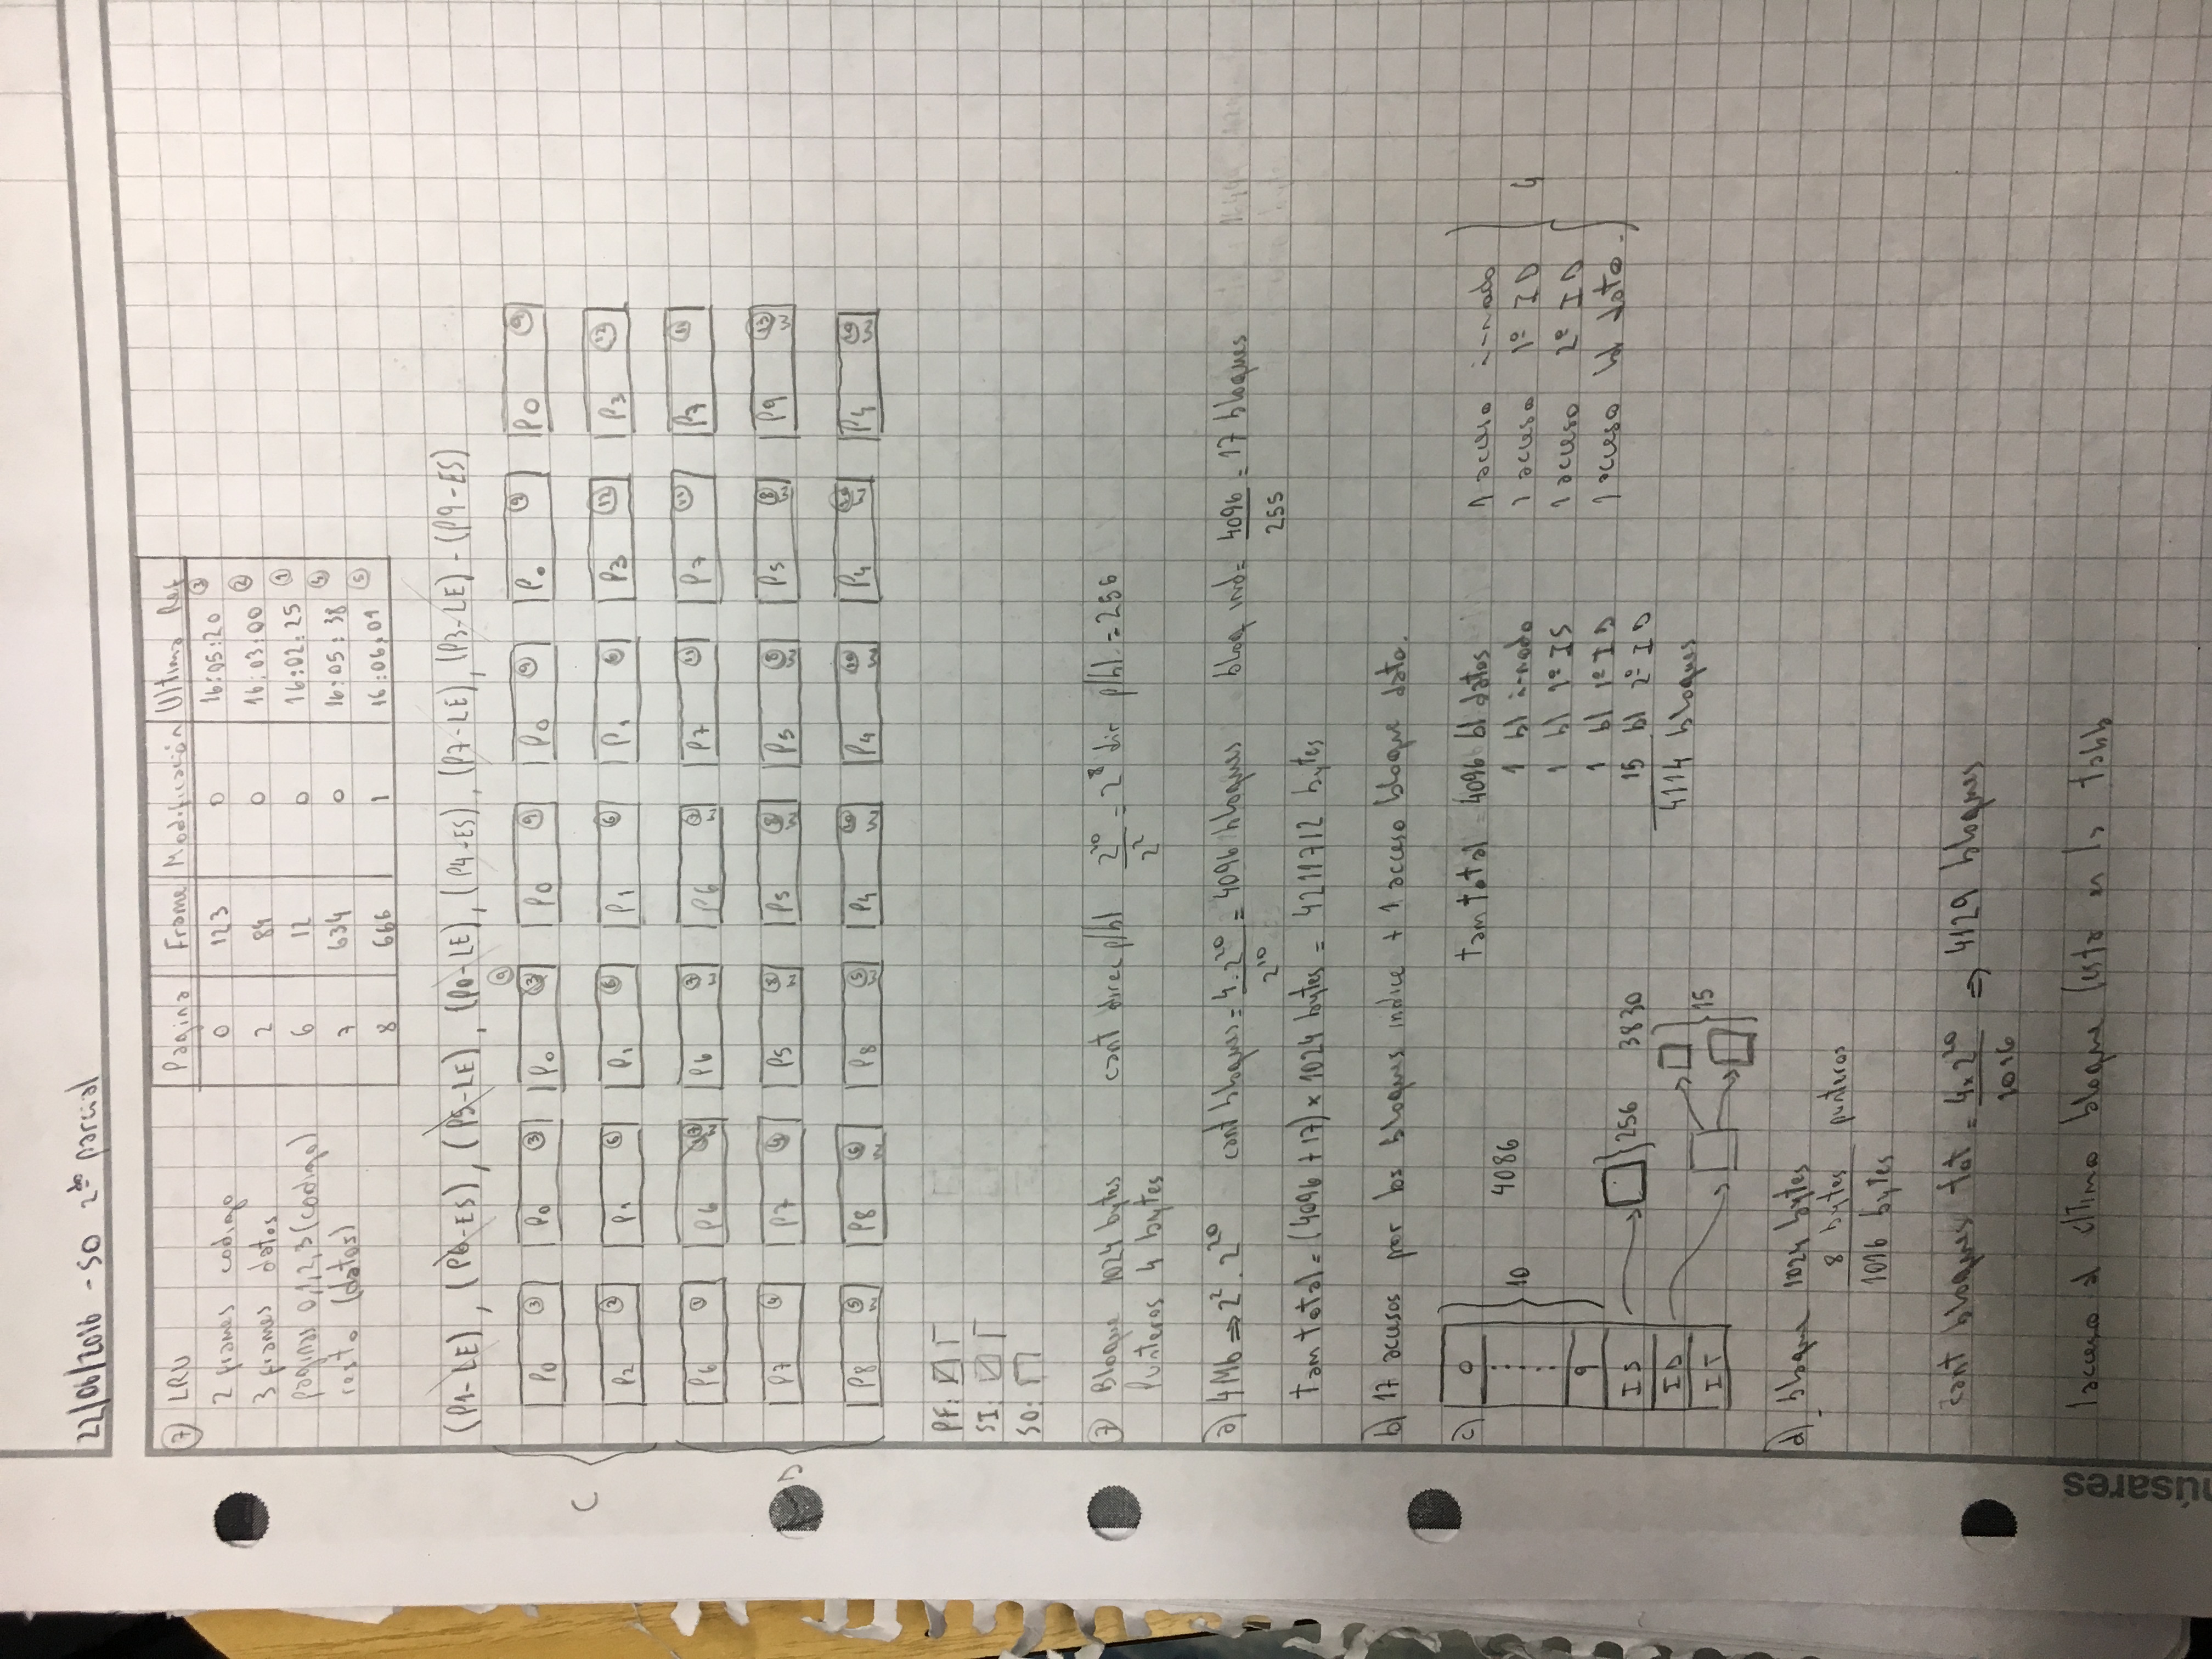 22/06/2016 - SO 2do parcial
7 LRU
2 frames codigo
3 frames datos
paginas 0,1,2,3 (codigo)
resto (datos)
Pagina Frame Modificación Ultima Ref
0 123 0 16:05:20 3
2 84 0 16:03:00 2
6 12 0 16:02:25 1
7 634 0 16:05:38 4
8 666 1 16:06:01 5
(P1-LE), (P6-ES), (P5-LE), (P0-LE), (P4-ES), (P7-LE), (P3-LE) - (P9-ES)
9
P0 3 P0 3 P0 3 P0 9 P0 9 P0 9 P0 9
C
P2 2 P1 6 P1 6 P1 6 P1 6 P3 12 P3 12
P6 1 P6 P6 7 M P6 7 M P7 11 P7 11 P7 11
D
P7 4 P7 4 P5 8 M P5 8 M P5 8 M P5 8 M P9 13 M
P8 5 M P8 5 M P8 5 M P4 10 M P4 10 M P4 10 M P4 10 M
PF:
SI:
SO:
7 Bloque 1024 bytes cant direc p/bl 2^10/2^2 = 2^8 dir p/bl. = 256
Punteros 4 bytes
a) 4Mb ⇒ 2^2 . 2^20 cant bloques = 4.2^20/2^10 = 4096 bloques bloq ind = 4096/255 = 17 bloques
tam total = (4096 + 17) x 1024 bytes = 4211712 bytes
b) 17 accesos por los bloques indice + 1 acceso bloque dato.
c) 0 tam total = 4096 bl datos 1 acceso i-nodo
10 4086 1 bl i-nodo 1 acceso 1º ID 4
1 bl 1º IS 1 acceso 2º ID
9 1 bl 1º ID 1 acceso bl dato.
IS 256 3830 15 bl 2º ID
ID 15 4114 bloques
IT
d) bloque 1024 bytes
8 bytes punteros
1016 bytes
cant bloques tot = 4x2^20/1016 ⇒ 4129 bloques
1 acceso al último bloque (esta en la tabla
núsares